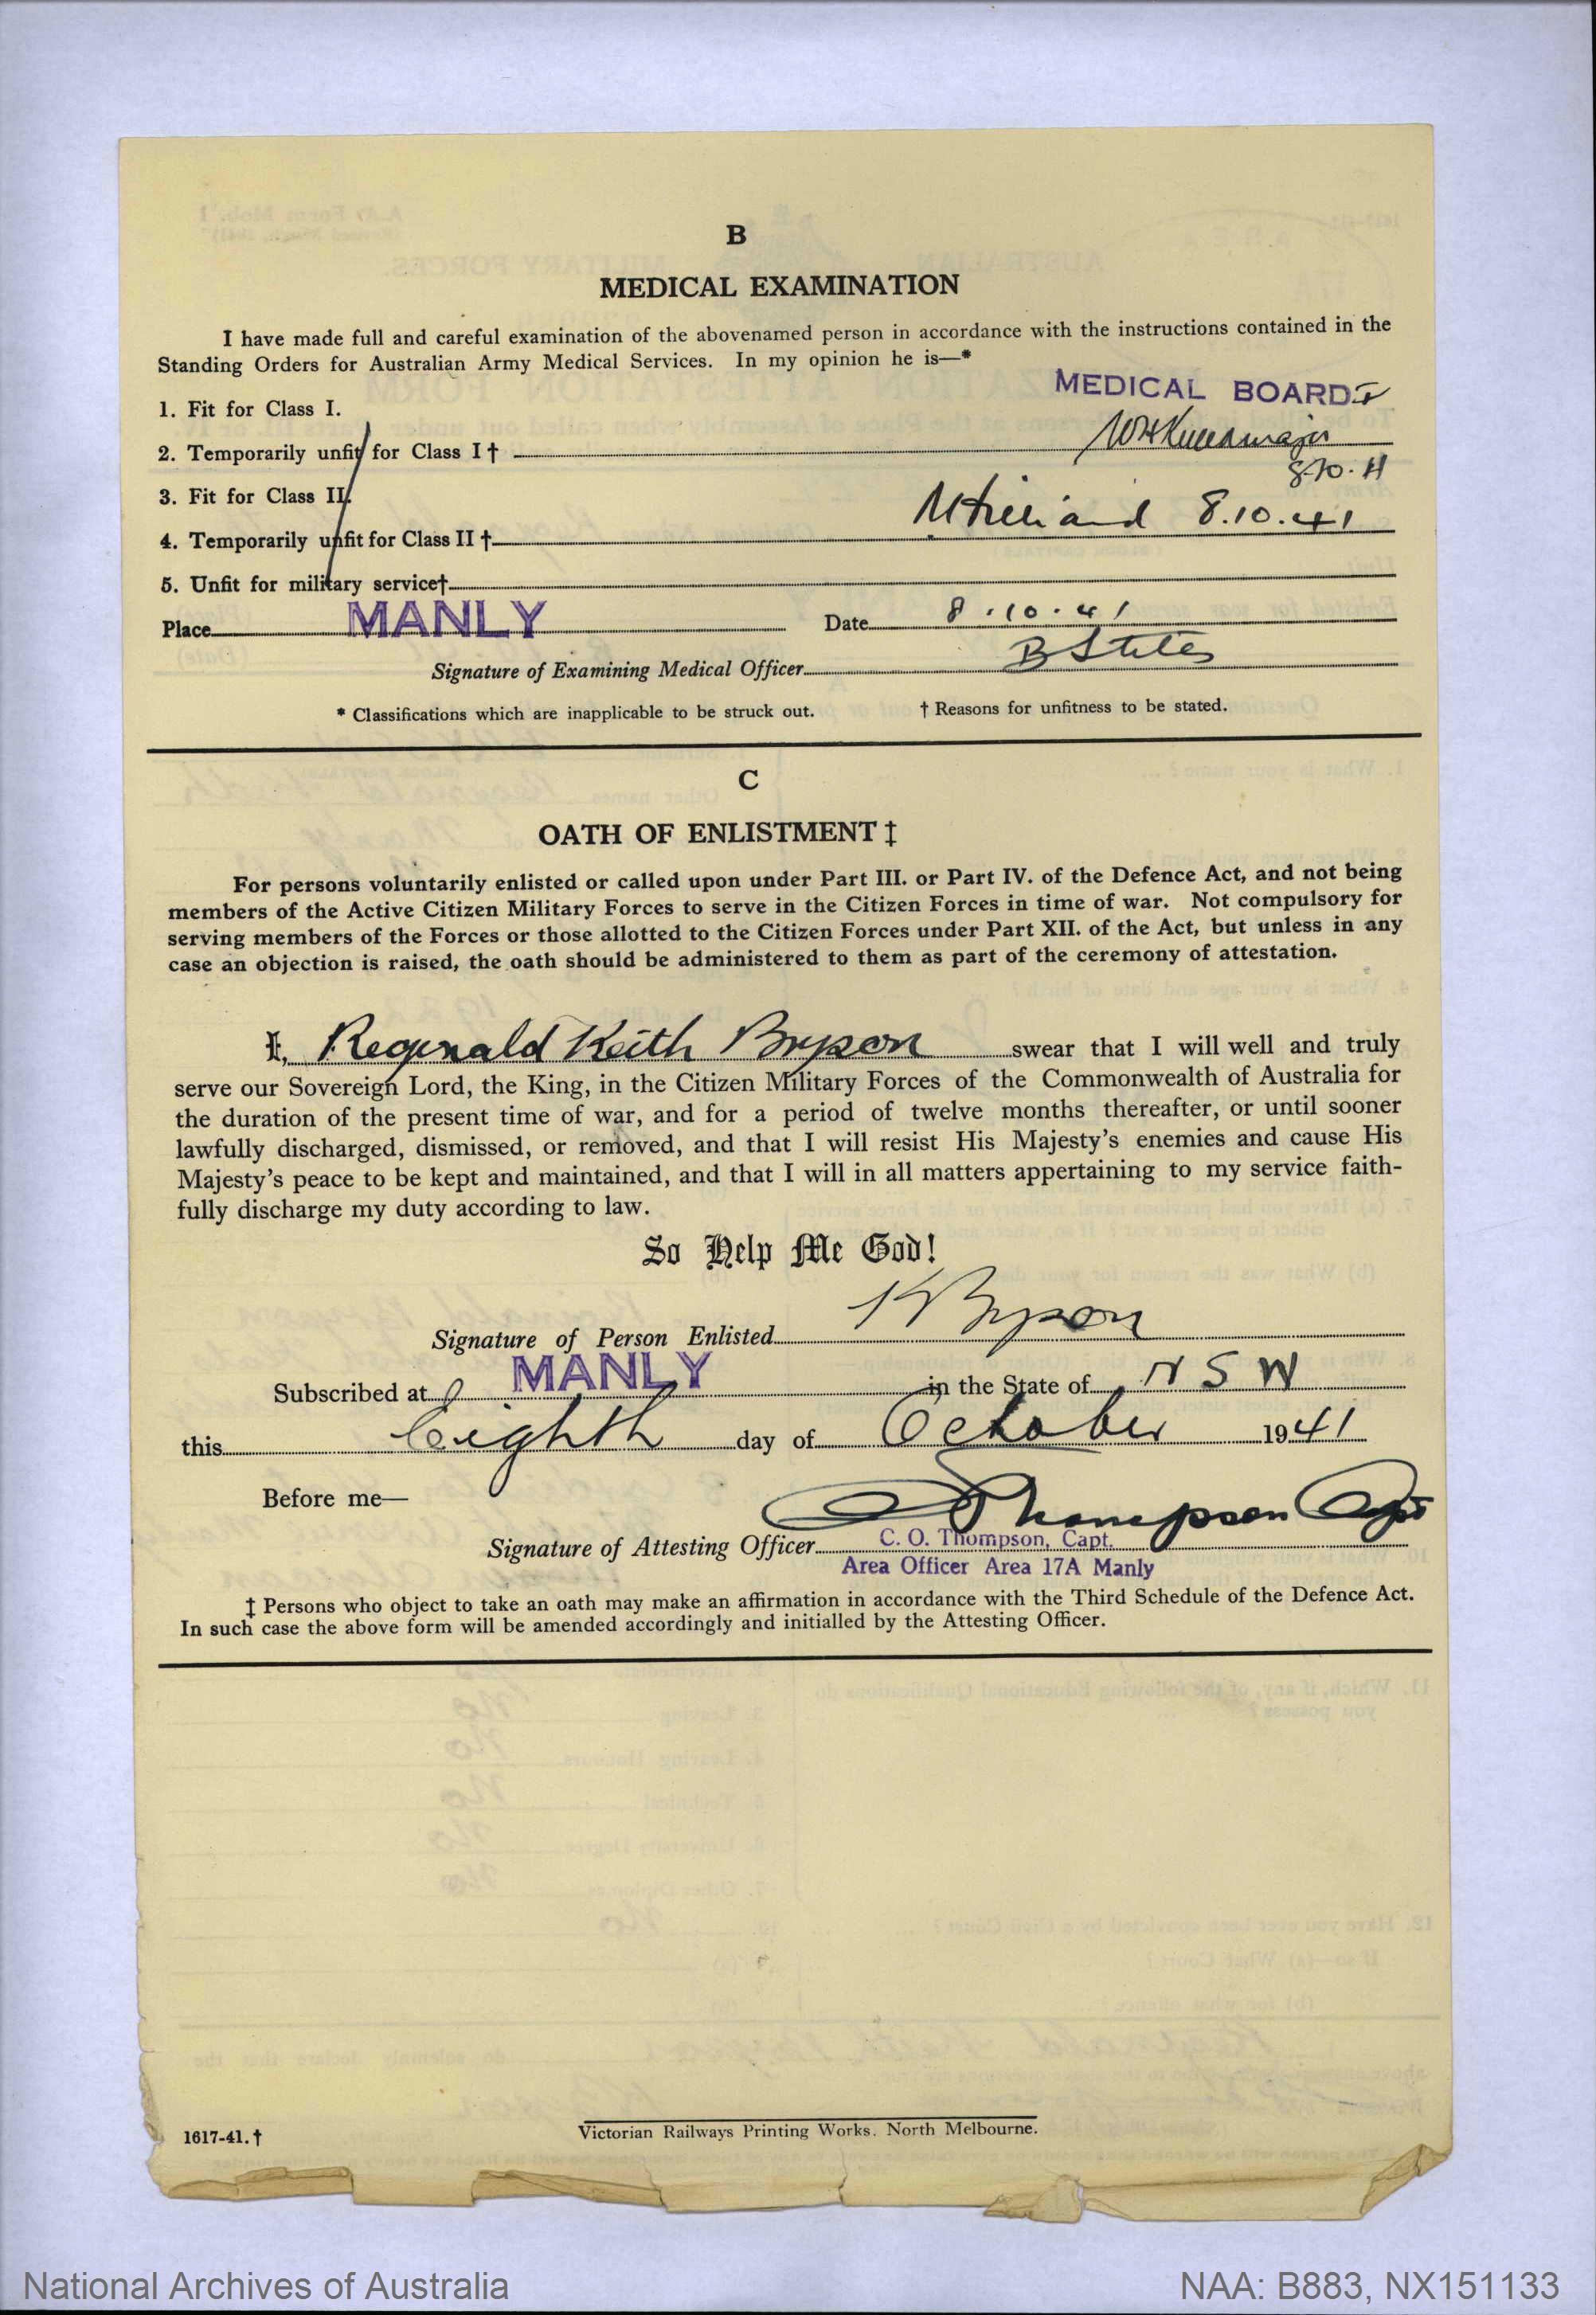 B
MEDICAL EXAMINATION
I have made full and careful examination of the abovenamed person in accordance with the instructions contained in the
Standing Orders for Australian Army Medical Services. In my opinion he is—*
MEDICAL BOARD I
1. Fit for Class I.
2. Temporarily unfit for Class I †
8.10.41
3. Fit for Class II.
8.10.41
4. Temporarily unfit for Class II †
5. Unfit for military service†
Place MANLY Date 8.10.41
Signature of Examining Medical Officer B Stiles
* Classifications which are inapplicable to be struck out. † Reasons for unfitness to be stated.
C
OATH OF ENLISTMENT ‡
For persons voluntarily enlisted or called upon under Part III. or Part IV. of the Defence Act, and not being
members of the Active Citizen Military Forces to serve in the Citizen Forces in time of war. Not compulsory for
serving members of the Forces or those allotted to the Citizen Forces under Part XII. of the Act, but unless in any
case an objection is raised, the oath should be administered to them as part of the ceremony of attestation.
I, Reginald Keith Bryson swear that I will well and truly
serve our Sovereign Lord, the King, in the Citizen Military Forces of the Commonwealth of Australia for
the duration of the present time of war, and for a period of twelve months thereafter, or until sooner
lawfully discharged, dismissed, or removed, and that I will resist His Majesty's enemies and cause His
Majesty's peace to be kept and maintained, and that I will in all matters appertaining to my service faith-
fully discharge my duty according to law.
So Help Me God!
Signature of Person Enlisted K Bryson
Subscribed at MANLY in the State of N S W
this Eighth day of October 1941
Before me—
Signature of Attesting Officer C O Thompson Capt
C. O. Thompson, Capt.
Area Officer Area 17A Manly
‡ Persons who object to take an oath may make an affirmation in accordance with the Third Schedule of the Defence Act.
In such case the above form will be amended accordingly and initialled by the Attesting Officer.
1617-41.†
Victorian Railways Printing Works. North Melbourne.
National Archives of Australia
NAA: B883, NX151133